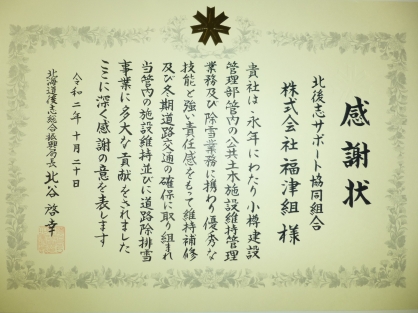 感謝状
北後志サポート協同組合
株式会社福津組 様
貴社は、永年にわたり小樽建設
管理部管内の公共土木施設維持管理
業務及び除雪業務に携わり優秀な
技能と強い責任感をもって維持補修
及び冬期道路交通の確保に取り組まれ
当管内の施設維持並びに道路除排雪
事業に多大な貢献をされました
ここに深く感謝の意を表します
令和二年十月二十日
北海道後志総合振興局長 北谷啓幸